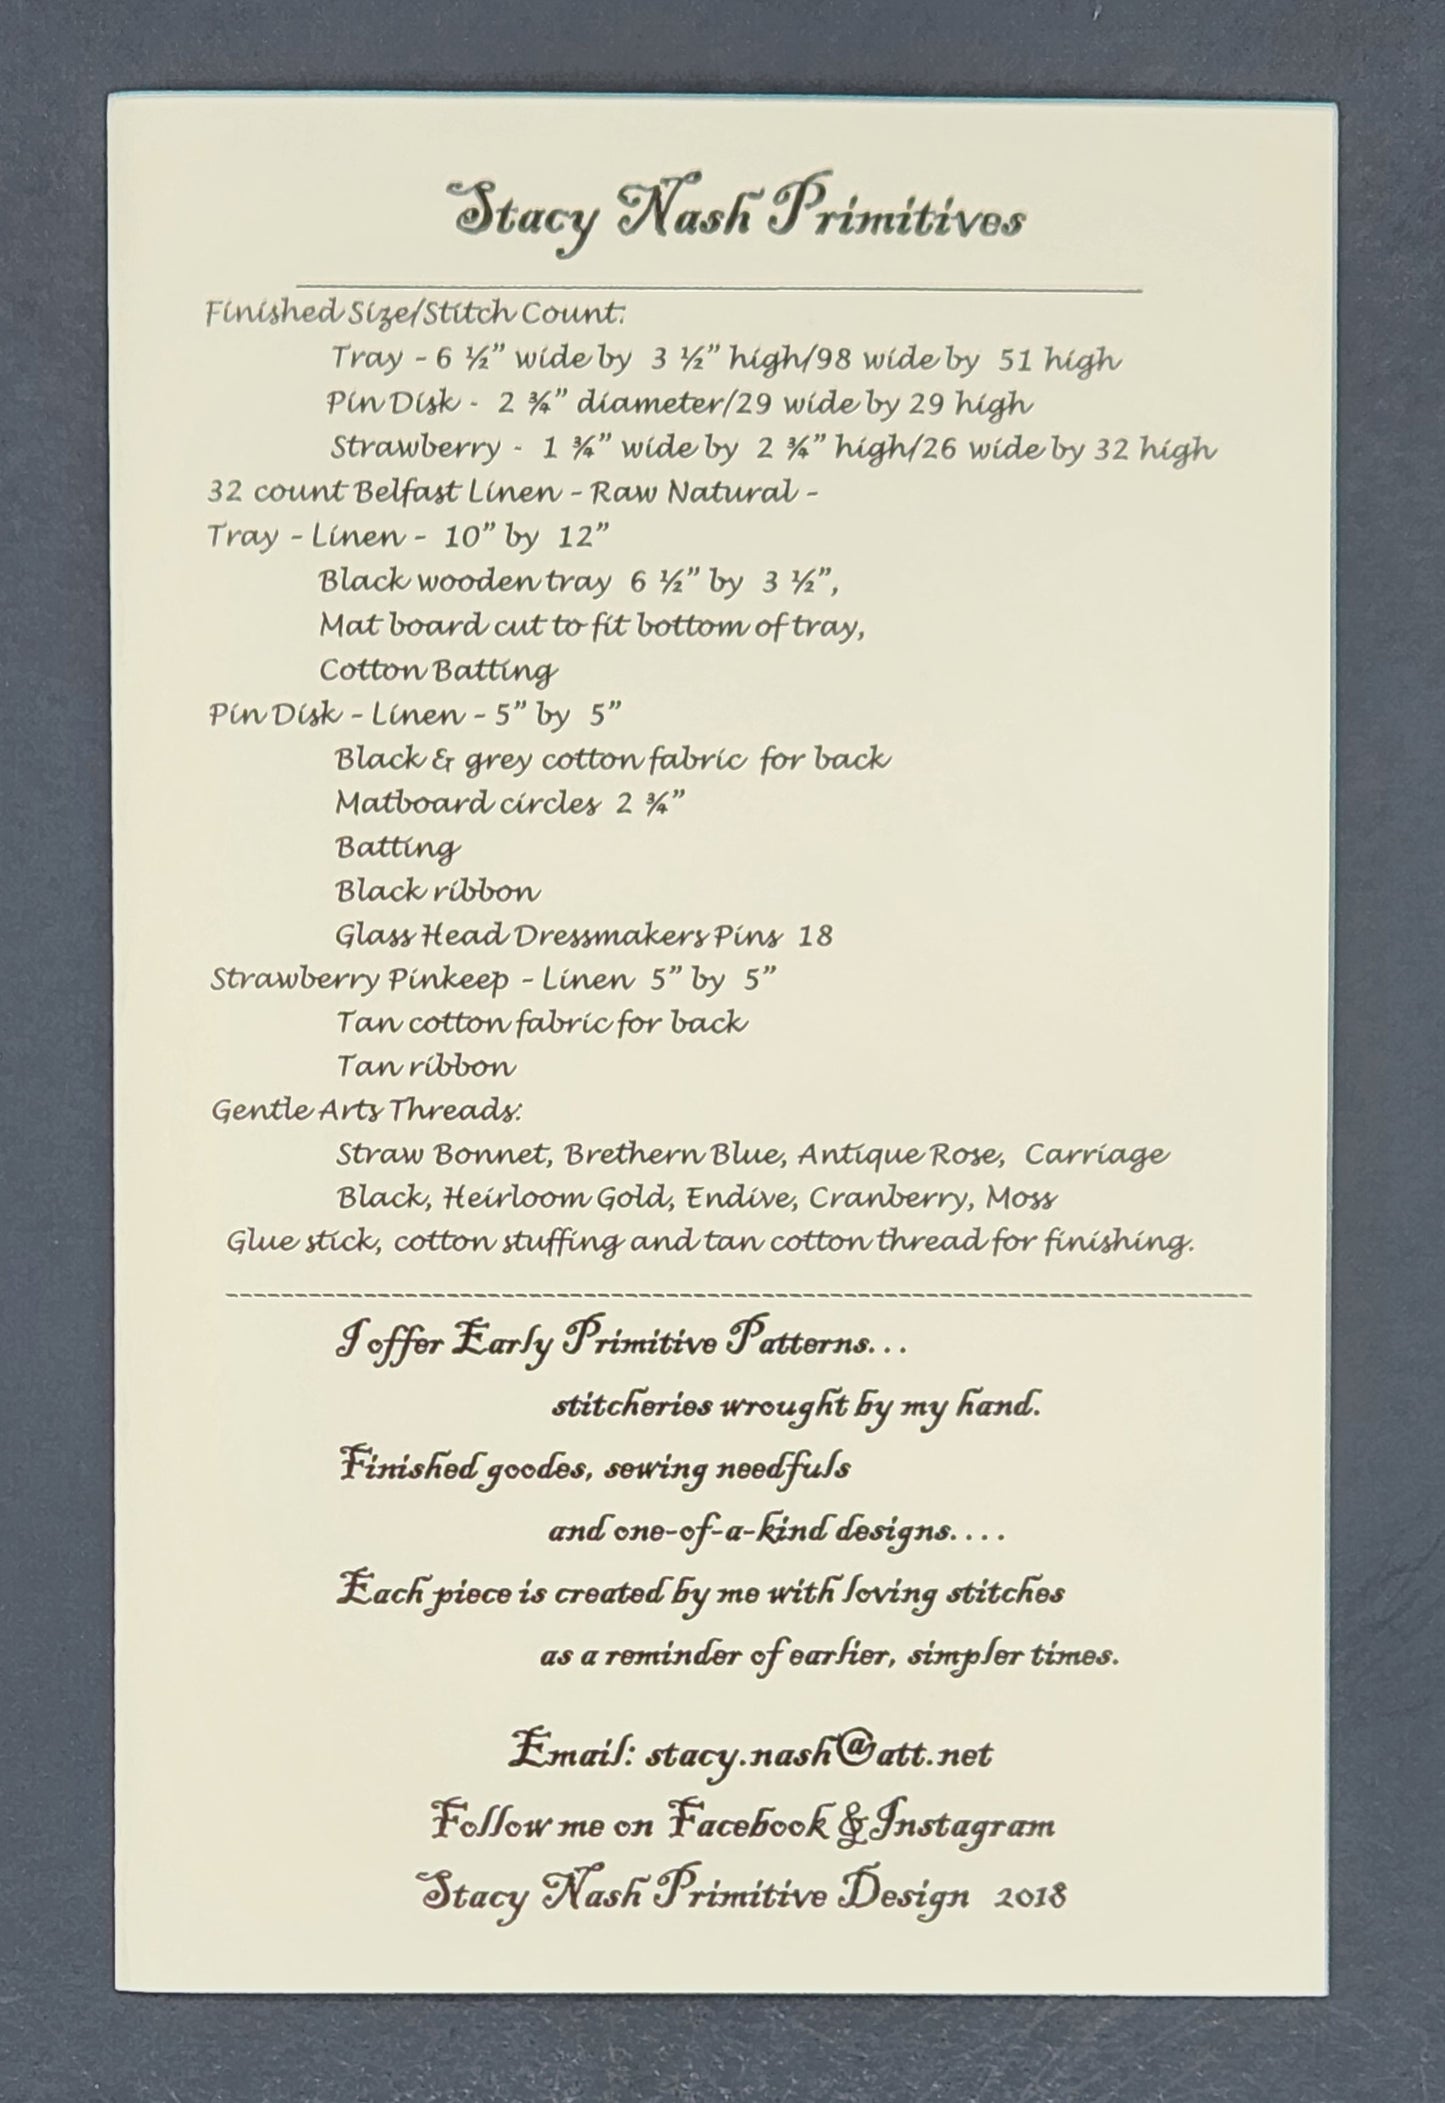 Stacy Nash Primitives
Finished Size/Stitch Count:
Tray - 6 ½” wide by 3 ½” high/98 wide by 51 high
Pin Disk - 2 ¾” diameter/29 wide by 29 high
Strawberry - 1 ¾” wide by 2 ¾” high/26 wide by 32 high
32 count Belfast Linen - Raw Natural -
Tray - Linen - 10” by 12”
Black wooden tray 6 ½” by 3 ½”,
Mat board cut to fit bottom of tray,
Cotton Batting
Pin Disk - Linen - 5” by 5”
Black & grey cotton fabric for back
Matboard circles 2 ¾”
Batting
Black ribbon
Glass Head Dressmakers Pins 18
Strawberry Pinkeep - Linen 5” by 5”
Tan cotton fabric for back
Tan ribbon
Gentle Arts Threads:
Straw Bonnet, Brethern Blue, Antique Rose, Carriage
Black, Heirloom Gold, Endive, Cranberry, Moss
Glue stick, cotton stuffing and tan cotton thread for finishing.
I offer Early Primitive Patterns...
stitcheries wrought by my hand.
Finished goodes, sewing needfuls
and one-of-a-kind designs....
Each piece is created by me with loving stitches
as a reminder of earlier, simpler times.
Email: stacy.nash@att.net
Follow me on Facebook & Instagram
Stacy Nash Primitive Design 2018